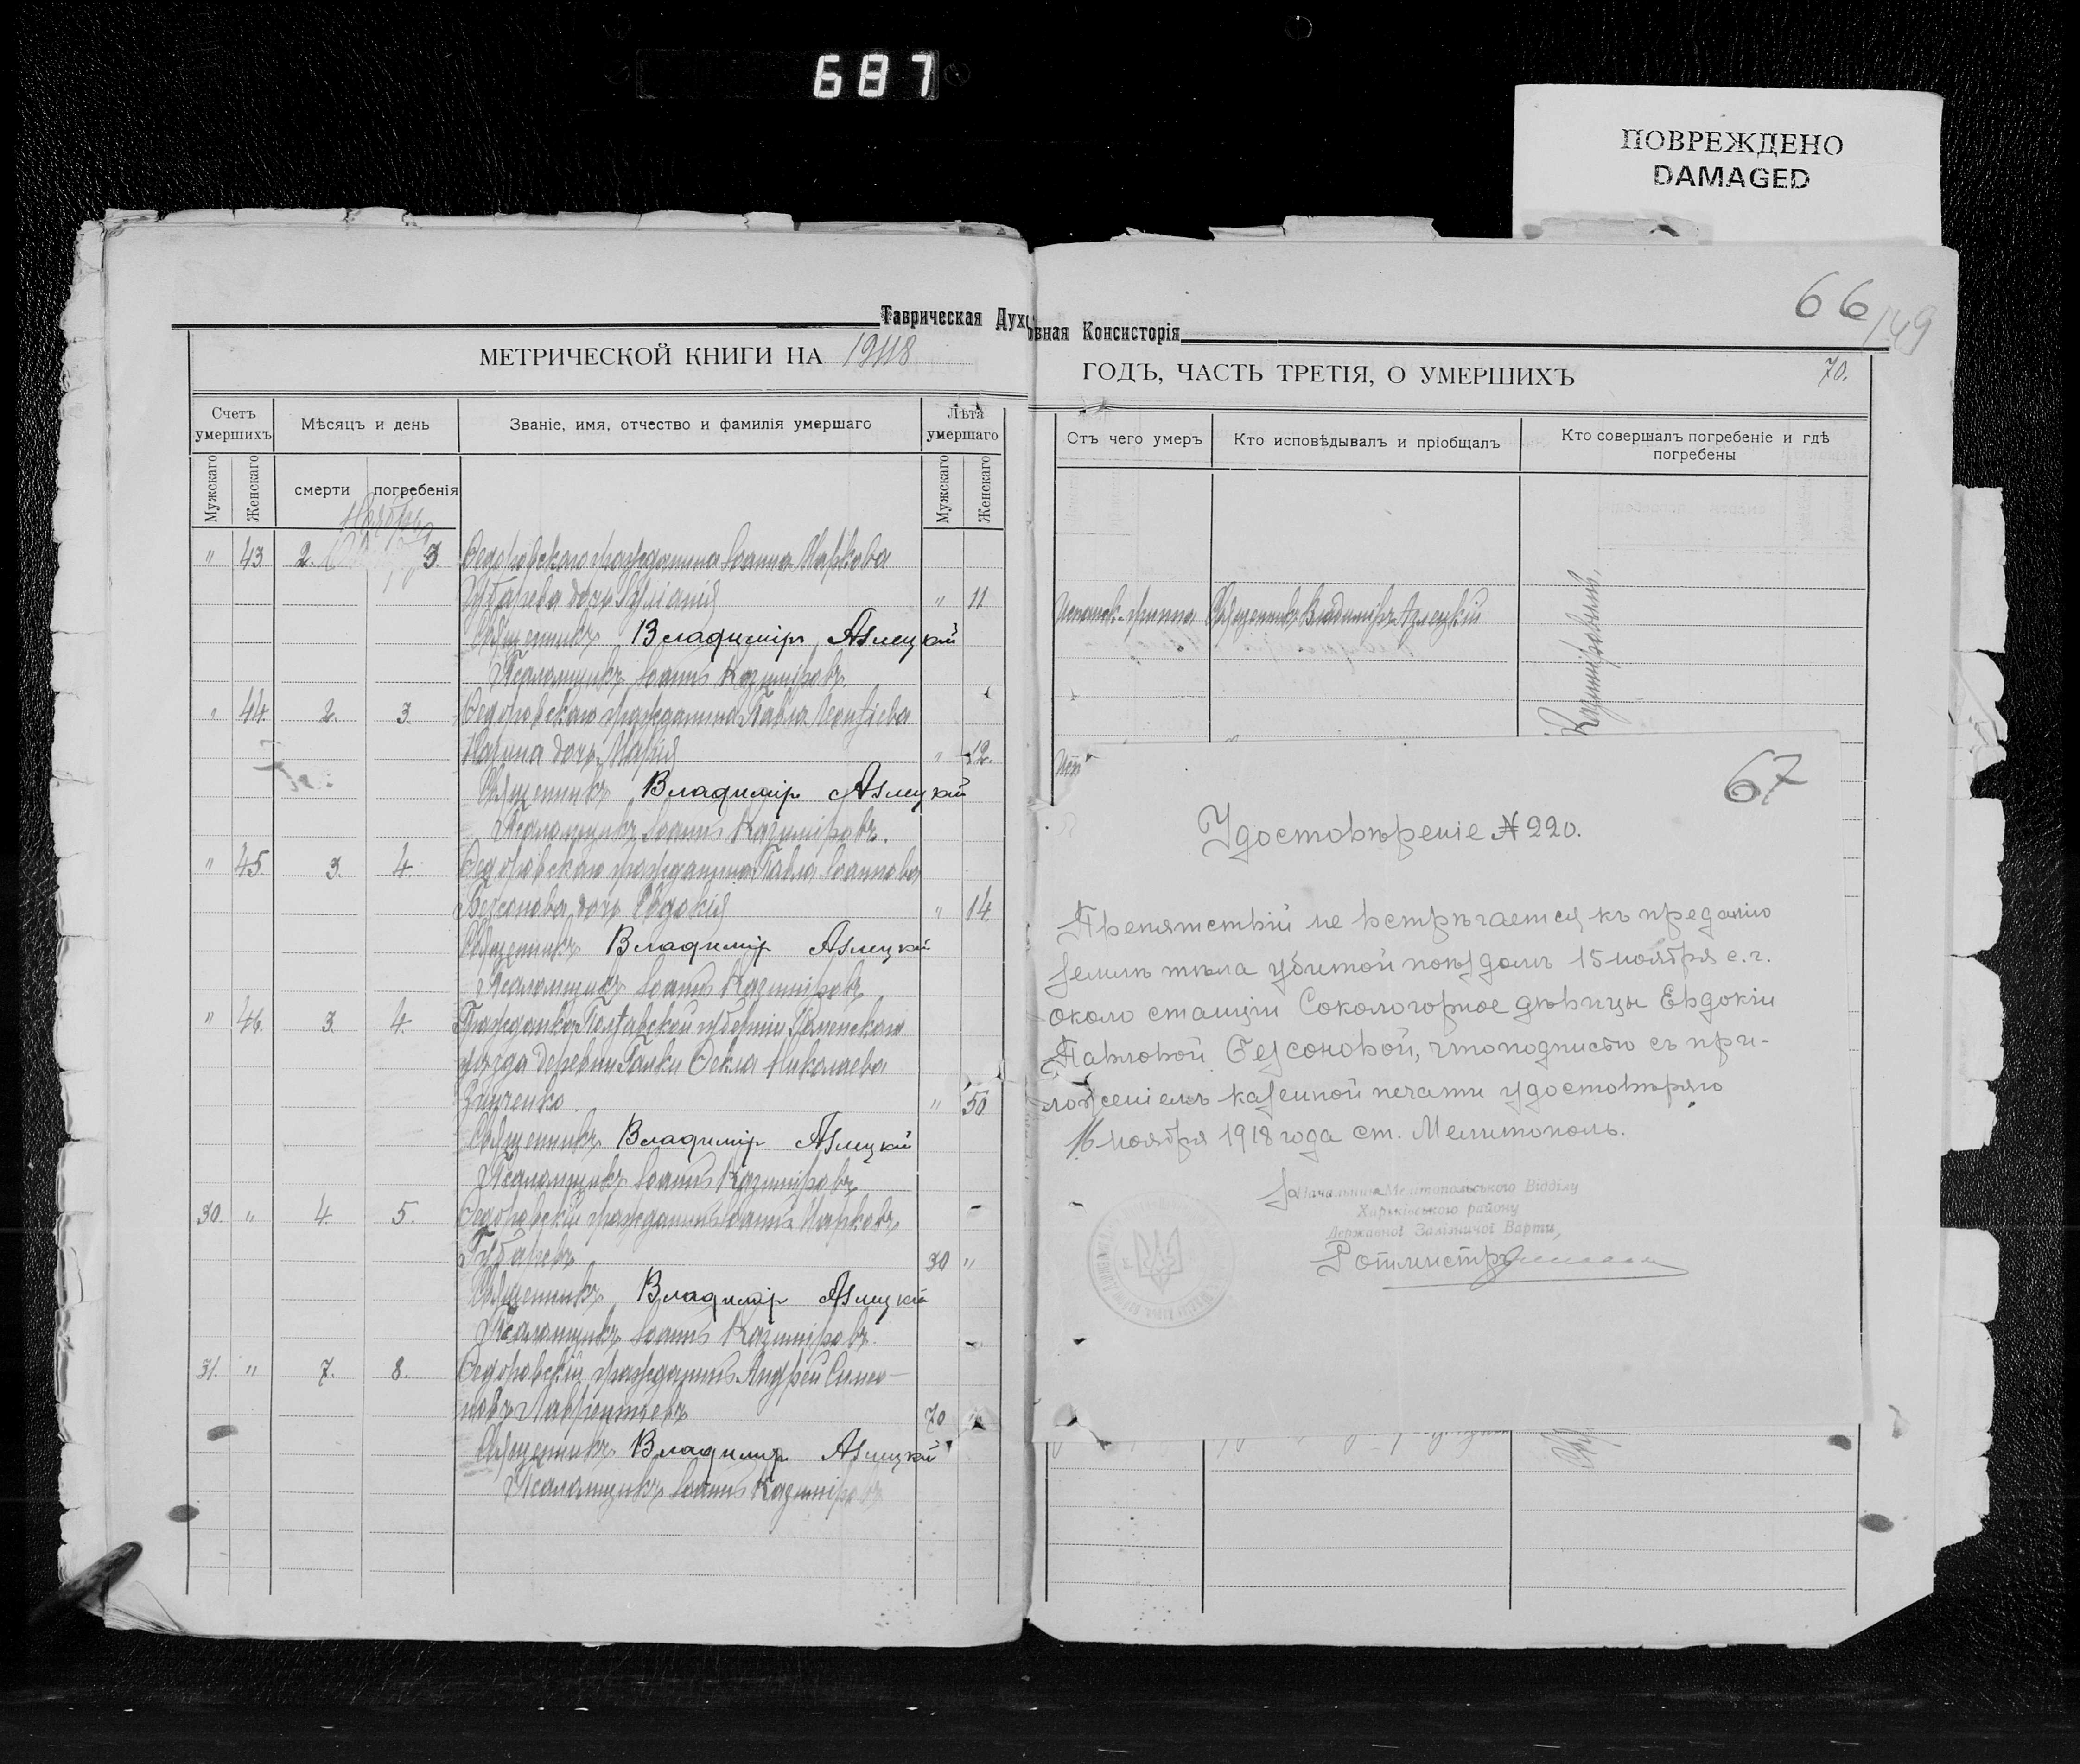 687
ПОВРЕЖДЕНО
DAMAGED
Таврическая Духовная Консисторія
66
149
МЕТРИЧЕСКОЙ КНИГИ НА 1918
ГОДЪ, ЧАСТЬ ТРЕТІЯ, О УМЕРШИХЪ
70.
Счетъ умершихъ
Мѣсяцъ и день
Званіе, имя, отчество и фамилія умершаго
Лѣта умершаго
Мужскаго
Женскаго
смерти
погребенія
Мужскаго
Женскаго
Отъ чего умеръ
Кто исповѣдывалъ и пріобщалъ
Кто совершалъ погребеніе и гдѣ погребены
Ноября
" 43 2. 3. Ѳедоровскаго гражданина Іоанна Маркова
Губарева дочь " 11
Священникъ Владиміръ Азлецкій
Псаломщикъ Іоаннъ Казиміровъ.
" 44 2. 3. Ѳедоровскаго гражданина Павла Леонтіева
дочь Марія " 12.
Священникъ Владиміръ Азлецкій
Псаломщикъ Іоаннъ Казиміровъ.
" 45 3. 4. Ѳедоровскаго гражданина Павла Іоаннова
Безсонова дочь Евдокія " 14
Священникъ Владиміръ Азлецкій
Псаломщикъ Іоаннъ Казиміровъ
" 46. 3. 4. Гражданка Полтавской губерніи Роменскаго
уѣзда деревни Галки Ѳекла Николаева
Зинченко " 50
Священникъ Владиміръ Азлецкій
Псаломщикъ Іоаннъ Казиміровъ
30. " 4. 5. Ѳедоровскій гражданинъ Іоаннъ Марковъ
Губаревъ 30 "
Священникъ Владиміръ Азлецкій
Псаломщикъ Іоаннъ Казиміровъ.
31. " 7. 8. Ѳедоровскій гражданинъ Андрей Симео-
новъ Лаврентьевъ 70
Священникъ Владиміръ Азлецкій
Псаломщикъ Іоаннъ Казиміровъ
Испанск. гриппа Священникъ Владиміръ Азлецкій
Казиміровымъ.
67
Удостовѣреніе № 220.
Препятствій не встрѣчается къ преданію
землѣ тѣла убитой поѣздомъ 15 ноября с. г.
около станціи Сокологорное дѣвицы Евдокіи
Павловой Безсоновой, что подписью съ при-
ложеніемъ казенной печати удостовѣряю
16 ноября 1918 года ст. Мелитополь.
За Начальника Мелітопольського Відділу
Харьківського району
Державної Залізничої Варти,
Ротмистръ